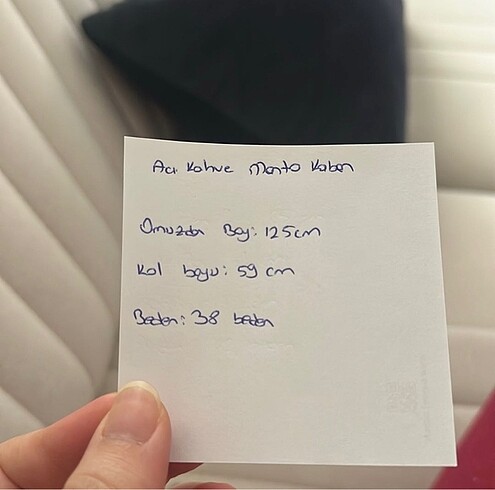 Acı Kahve Manto Kaban
Omuzdan Boy: 125cm
Kol boyu: 59 cm
Beden: 38 beden